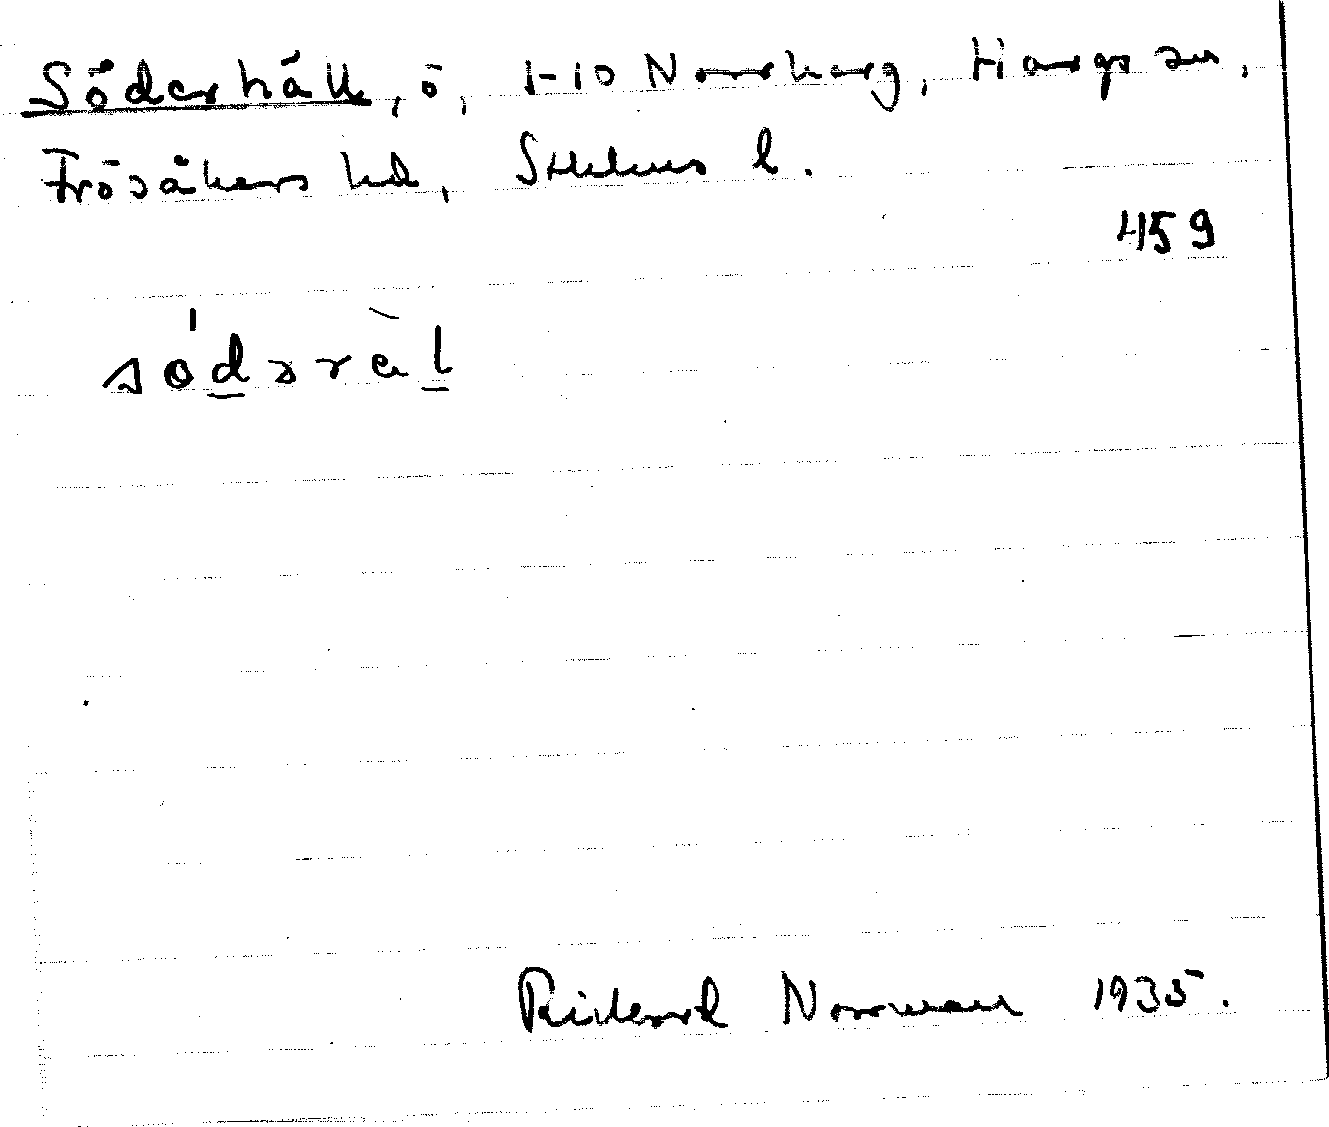 Söderhäll, ö, 1-10 Norrharg, Hargs sn,
Frösåkers hd, Sthlms l.
459
södəräl
Rickard Norrman 1935.